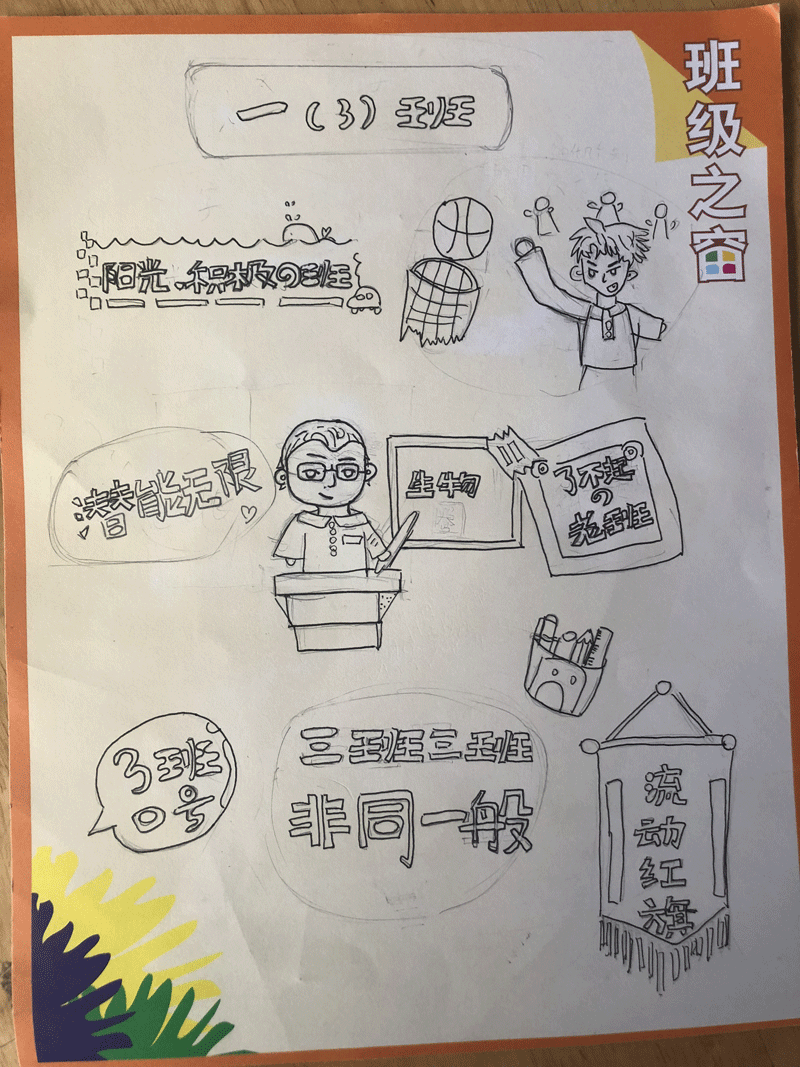 班级之窗
一（3）班
阳光、积极の班
潜能无限
生物
了不起
の
美班
3班
口号
三班三班
非同一般
流动红旗